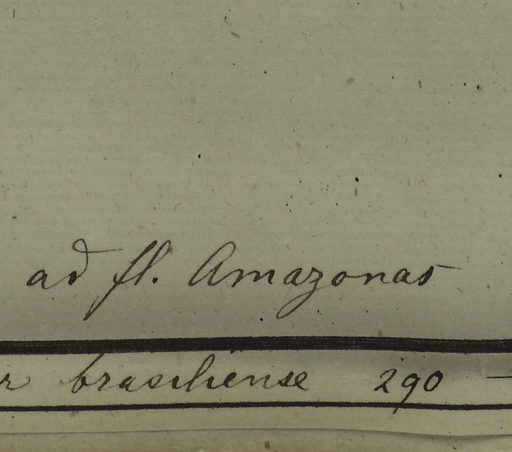 ad fl. Amazonas
r brasiliense 290 —